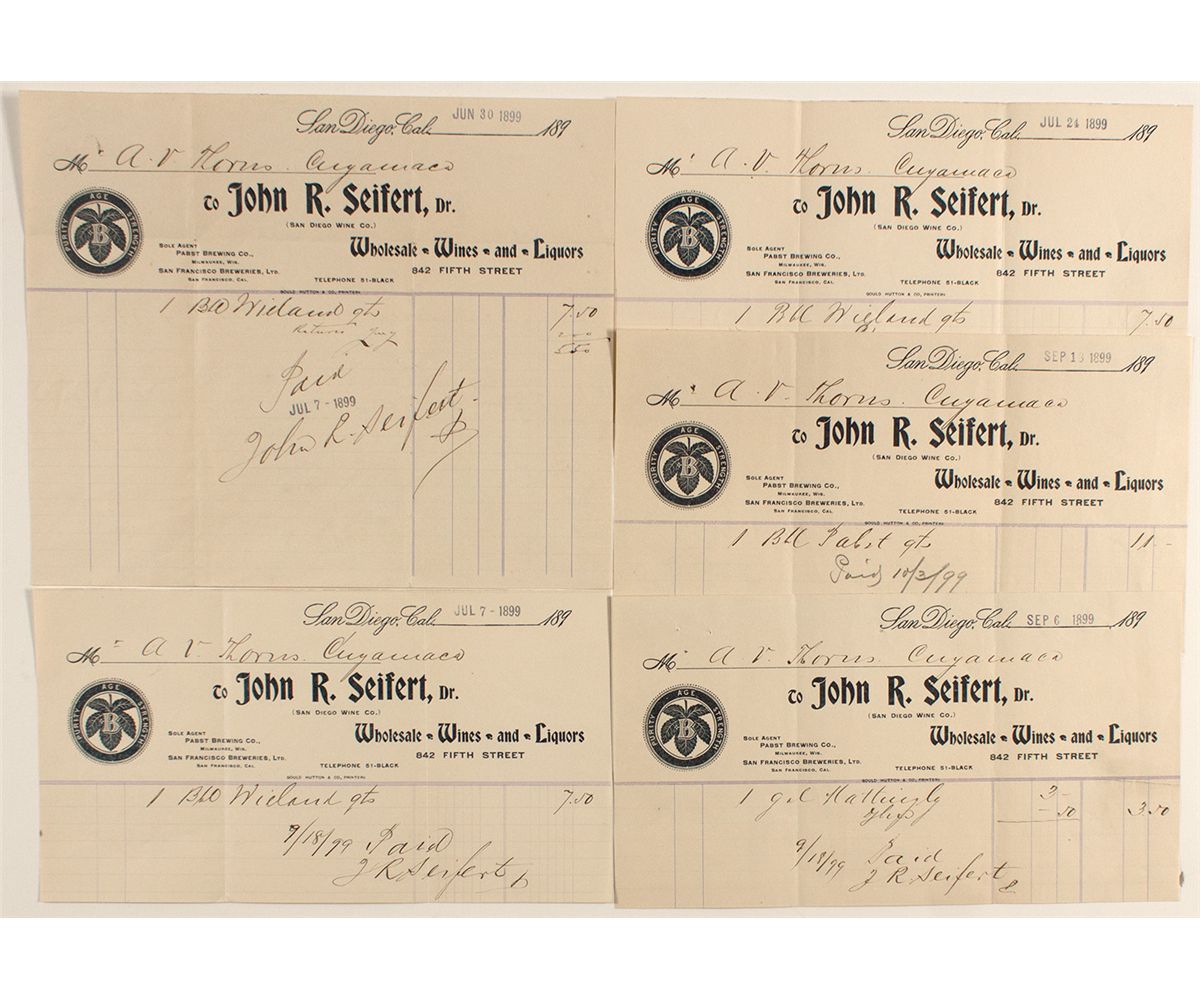 San Diego, Cal. JUN 30 1899 189
M A. V Thorns. Cuyamaca
To John R. Seifert, Dr.
(SAN DIEGO WINE CO.)
PURITY AGE STRENGTH
B
SOLE AGENT
PABST BREWING CO.,
MILWAUKEE, WIS.
SAN FRANCISCO BREWERIES, LTD.
SAN FRANCISCO, CAL.
Wholesale Wines and Liquors
842 FIFTH STREET
TELEPHONE 51-BLACK
GOULD HUTTON & CO, PRINTERS
1 Wieland qts 7.50
2 00
5 50
Paid
JUL 7 - 1899
John R. Seifert
San Diego, Cal. JUL 7 - 1899 189
M A V Thorns. Cuyamaca
To John R. Seifert, Dr.
(SAN DIEGO WINE CO.)
PURITY AGE STRENGTH
B
SOLE AGENT
PABST BREWING CO.,
MILWAUKEE, WIS.
SAN FRANCISCO BREWERIES, LTD.
SAN FRANCISCO, CAL.
Wholesale Wines and Liquors
842 FIFTH STREET
TELEPHONE 51-BLACK
GOULD HUTTON & CO, PRINTERS
1 Wieland qts 7.50
9/18/99 Paid
J R Seifert
San Diego, Cal. JUL 24 1899 189
M A. V Thorns. Cuyamaca
To John R. Seifert, Dr.
(SAN DIEGO WINE CO.)
PURITY AGE STRENGTH
B
SOLE AGENT
PABST BREWING CO.,
MILWAUKEE, WIS.
SAN FRANCISCO BREWERIES, LTD.
SAN FRANCISCO, CAL.
Wholesale Wines and Liquors
842 FIFTH STREET
TELEPHONE 51-BLACK
GOULD HUTTON & CO, PRINTERS
1 Wieland qts 7.50
San Diego, Cal. SEP 13 1899 189
M A. V Thorns. Cuyamaca
To John R. Seifert, Dr.
(SAN DIEGO WINE CO.)
PURITY AGE STRENGTH
B
SOLE AGENT
PABST BREWING CO.,
MILWAUKEE, WIS.
SAN FRANCISCO BREWERIES, LTD.
SAN FRANCISCO, CAL.
Wholesale Wines and Liquors
842 FIFTH STREET
TELEPHONE 51-BLACK
GOULD HUTTON & CO, PRINTERS
1 Pabst qts 11 -
Paid 10/2/99
San Diego, Cal. SEP 6 1899 189
M A. V Thorns. Cuyamaca
To John R. Seifert, Dr.
(SAN DIEGO WINE CO.)
PURITY AGE STRENGTH
B
SOLE AGENT
PABST BREWING CO.,
MILWAUKEE, WIS.
SAN FRANCISCO BREWERIES, LTD.
SAN FRANCISCO, CAL.
Wholesale Wines and Liquors
842 FIFTH STREET
TELEPHONE 51-BLACK
GOULD HUTTON & CO, PRINTERS
1 gal Mattingly 3 -
50 3.50
9/18/99 Paid
J R Seifert